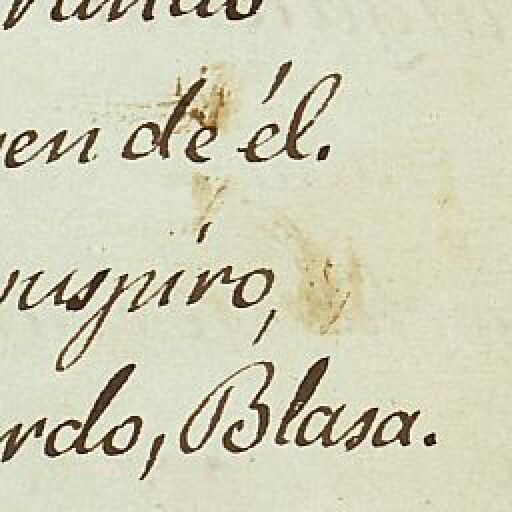 en de él.
suspiro,
rdo, Blasa.